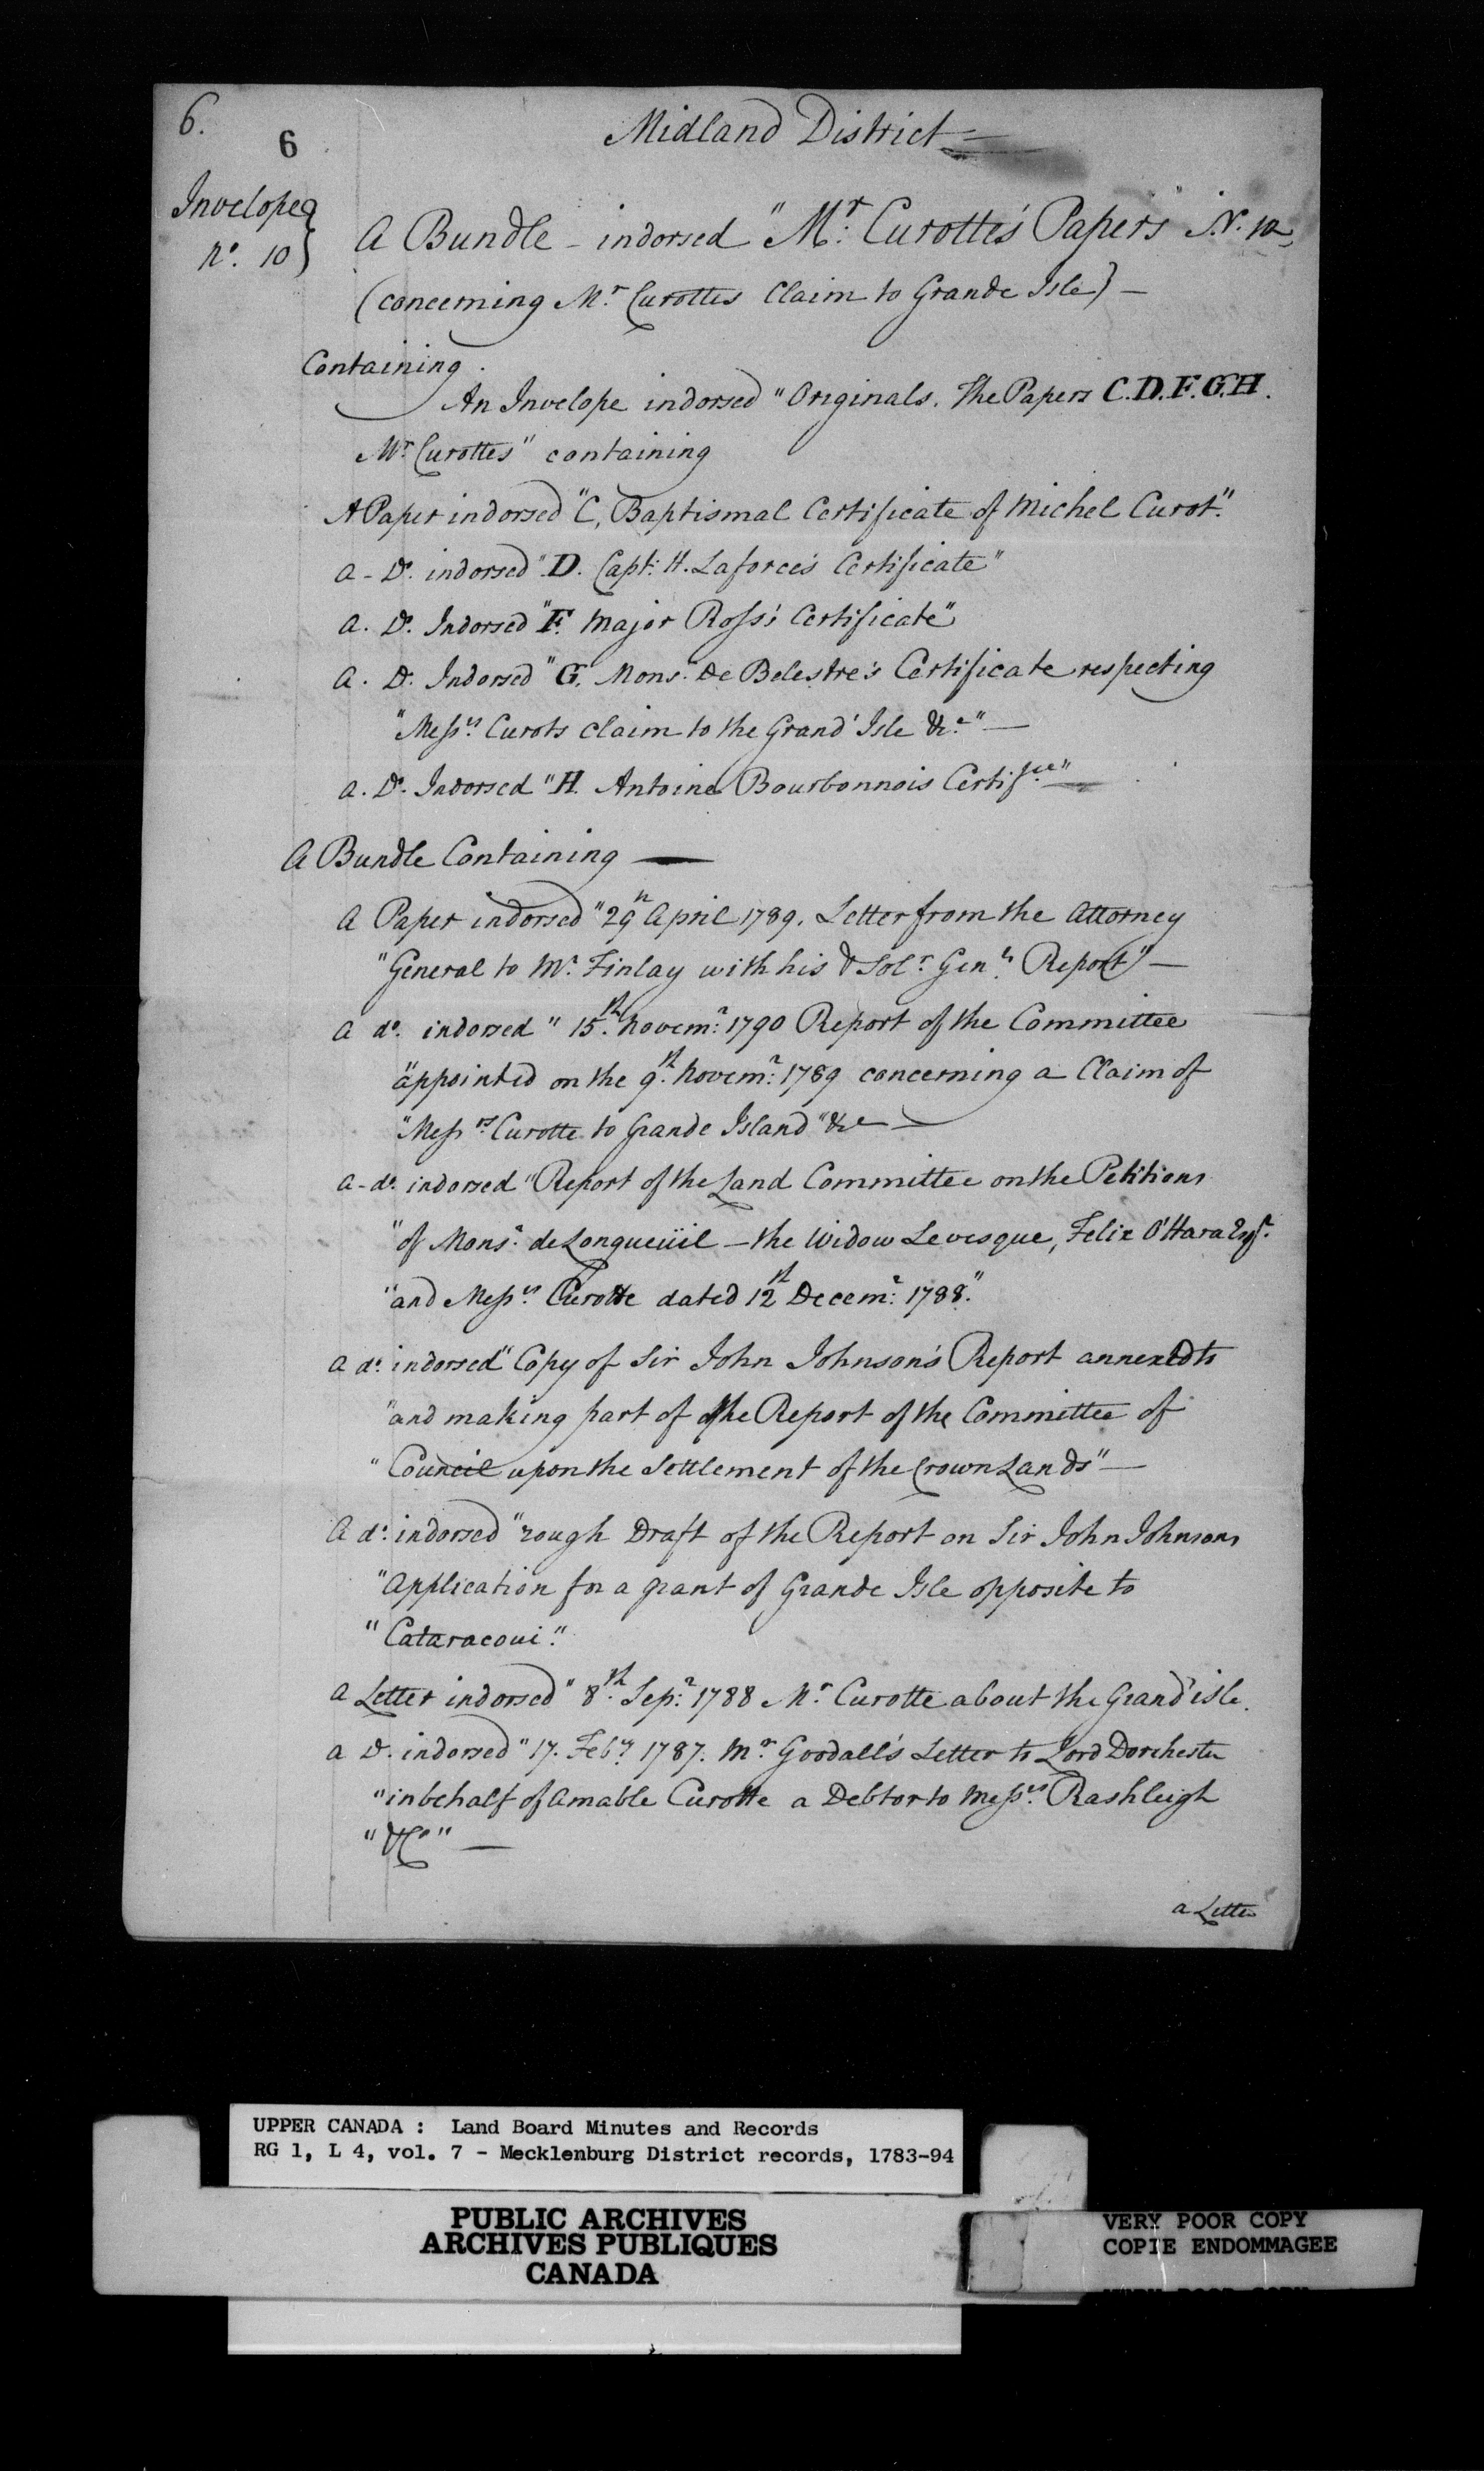 6.
6
Midland District
Invelope
No. 10
A Bundle - indorsed "Mr. Curotte's Papers" N. 10
(concerning Mr. Curottes Claim to Grande Isle) —
Containing.
An Invelope indorsed "Originals. The Papers C.D.F.G.H.
Mr. Curottes" containing
A Paper indorsed "C, Baptismal Certificate of Michel Curot."
a - Do. indorsed "D. Capt: H. Laforce's Certificate"
a. Do. Indorsed "F. Major Ross's Certificate"
a. Do. Indorsed "G. Monsr. De Belestre's Certificate respecting
"Messrs. Curots claim to the Grand Isle &c." —
a. Do. Indorsed "H. Antoine Bourbonnois Certifice" —
A Bundle Containing —
a Paper indorsed "29th April 1789. Letter from the Attorney
"General to Mr. Finlay with his & Solr. Genls. Report" —
a do. indorsed "15th. Novemr: 1790 Report of the Committee
"appointed on the 9th. Novemr: 1789 concerning a Claim of
"Messrs. Curotte to Grande Island" &c —
a - do. indorsed "Report of the Land Committee on the Petitions
"of Monsr. de Longueüil — the Widow Levesque, Felix O'Hara Esqr.
"and Messrs. Curotte dated 12th Decemr: 1788."
a do. indorsed "Copy of Sir John Johnson's Report annexed to
"and making part of the Report of the Committee of
"Council upon the Settlement of the Crown Lands" —
a do. indorsed "rough Draft of the Report on Sir John Johnsons
"Application for a grant of Grande Isle opposite to
"Cataracoui."
a Letter indorsed "8th. Sepr: 1788 Mr. Curotte about the Grand isle.
a Do. indorsed "17. Feby. 1787. Mr. Goodall's Letter to Lord Dorchester
"in behalf of Amable Curotte a Debtor to Messrs. Rashleigh
"& Co" —
a Letter
UPPER CANADA : Land Board Minutes and Records
RG 1, L 4, vol. 7 - Mecklenburg District records, 1783-94
PUBLIC ARCHIVES
ARCHIVES PUBLIQUES
CANADA
VERY POOR COPY
COPIE ENDOMMAGEE
VERY POOR COPY